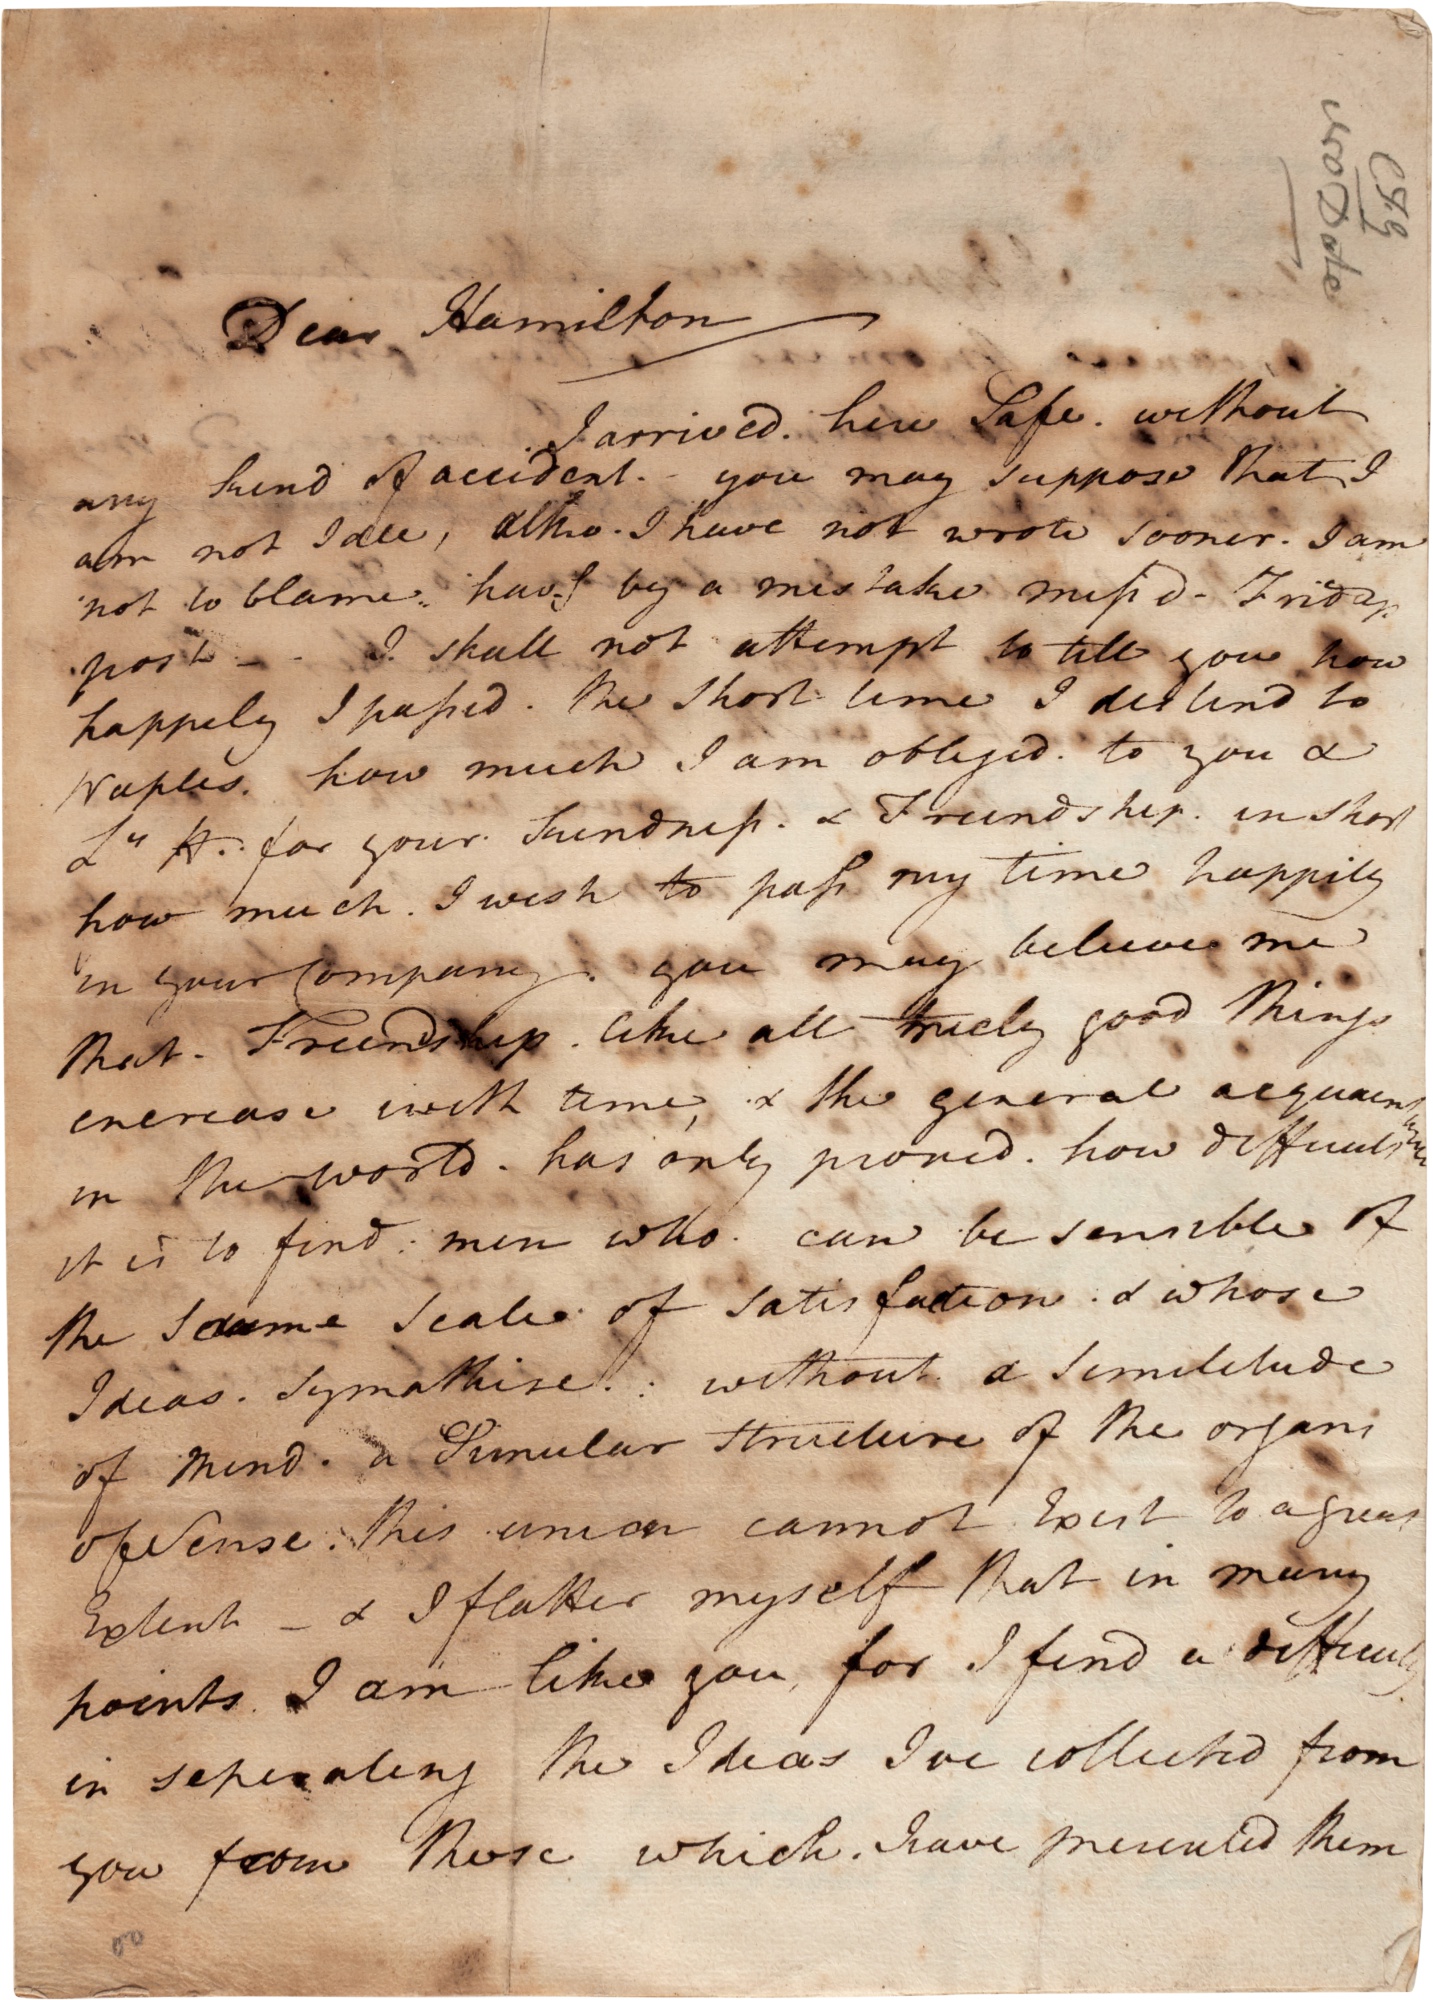 CFG
wo Date
Dear Hamilton
I arrived. here Safe. without
any kind of accident. - you may suppose that I
am not Idle, altho. I have not wrote sooner. I am
not to blame. havg by a mistake miss'd - Friday
post - - I shall not attempt to tell you how
happily I passed. the short time I destind to
Naples. how much I am obliged. to you &
Ly H. for your. kindness. & Friendship. in short
how much. I wish to pass my time happily
in your Company. you may believe me
that. Friendship. like all truely good things
encrease with time, & the general acquaintance
in the world. has only proved. how difficult
it is to find. men who. can be sensible of
the same scale of satisfaction. & whose
Ideas. Symathise. : without. a similitude
of mind. a Simular structure of the organs
of Sense. this union cannot Exist to a great
Extent - & I flatter myself that in many
points I am like you, for I find a difficulty
in seperating the Ideas I've collected from
you from those which. have presented them